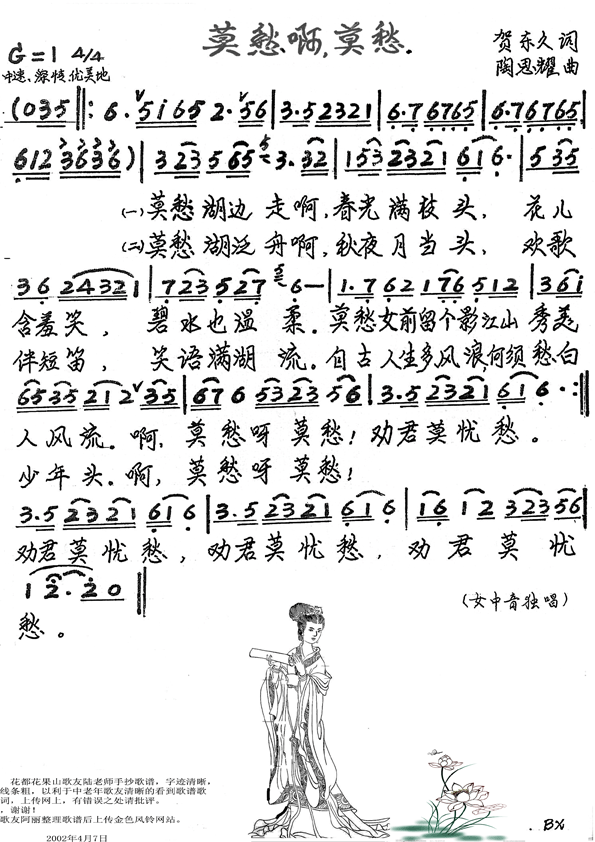 莫愁啊,莫愁.
G=1 4/4
贺东久词
中速、深情、优美地
陶思耀曲
(035‖: 6.5i65 2.56|3.52321|6.76765|6.76765|
612 363636)|323565 3.32|1532321616.|5 35
(一)莫愁湖边走啊,春光满枝头,花儿
(二)莫愁湖泛舟啊,秋夜月当头,欢歌
36 2432 1|723527 6—|1.762176512|36i
含羞笑,碧水也温柔.莫愁女前留个影江山秀美
伴短笛,笑语满湖流.自古人生多风浪,何须愁白
6535212 35|676 532356|3.52321616.:‖
人风流。啊,莫愁呀莫愁!劝君莫忧愁。
少年头。啊,莫愁呀莫愁!
3.52321616|3.52321616|1612 32356|
劝君莫忧愁,劝君莫忧愁,劝君莫忧
12.220‖
(女中音独唱)
愁。
花都花果山歌友陆老师手抄歌谱,字迹清晰,
线条粗,以利于中老年歌友清晰的看到歌谱歌
词,上传网上,有错误之处请批评。
,谢谢!
歌友阿丽整理歌谱后上传金色风铃网站。
2002年4月7日